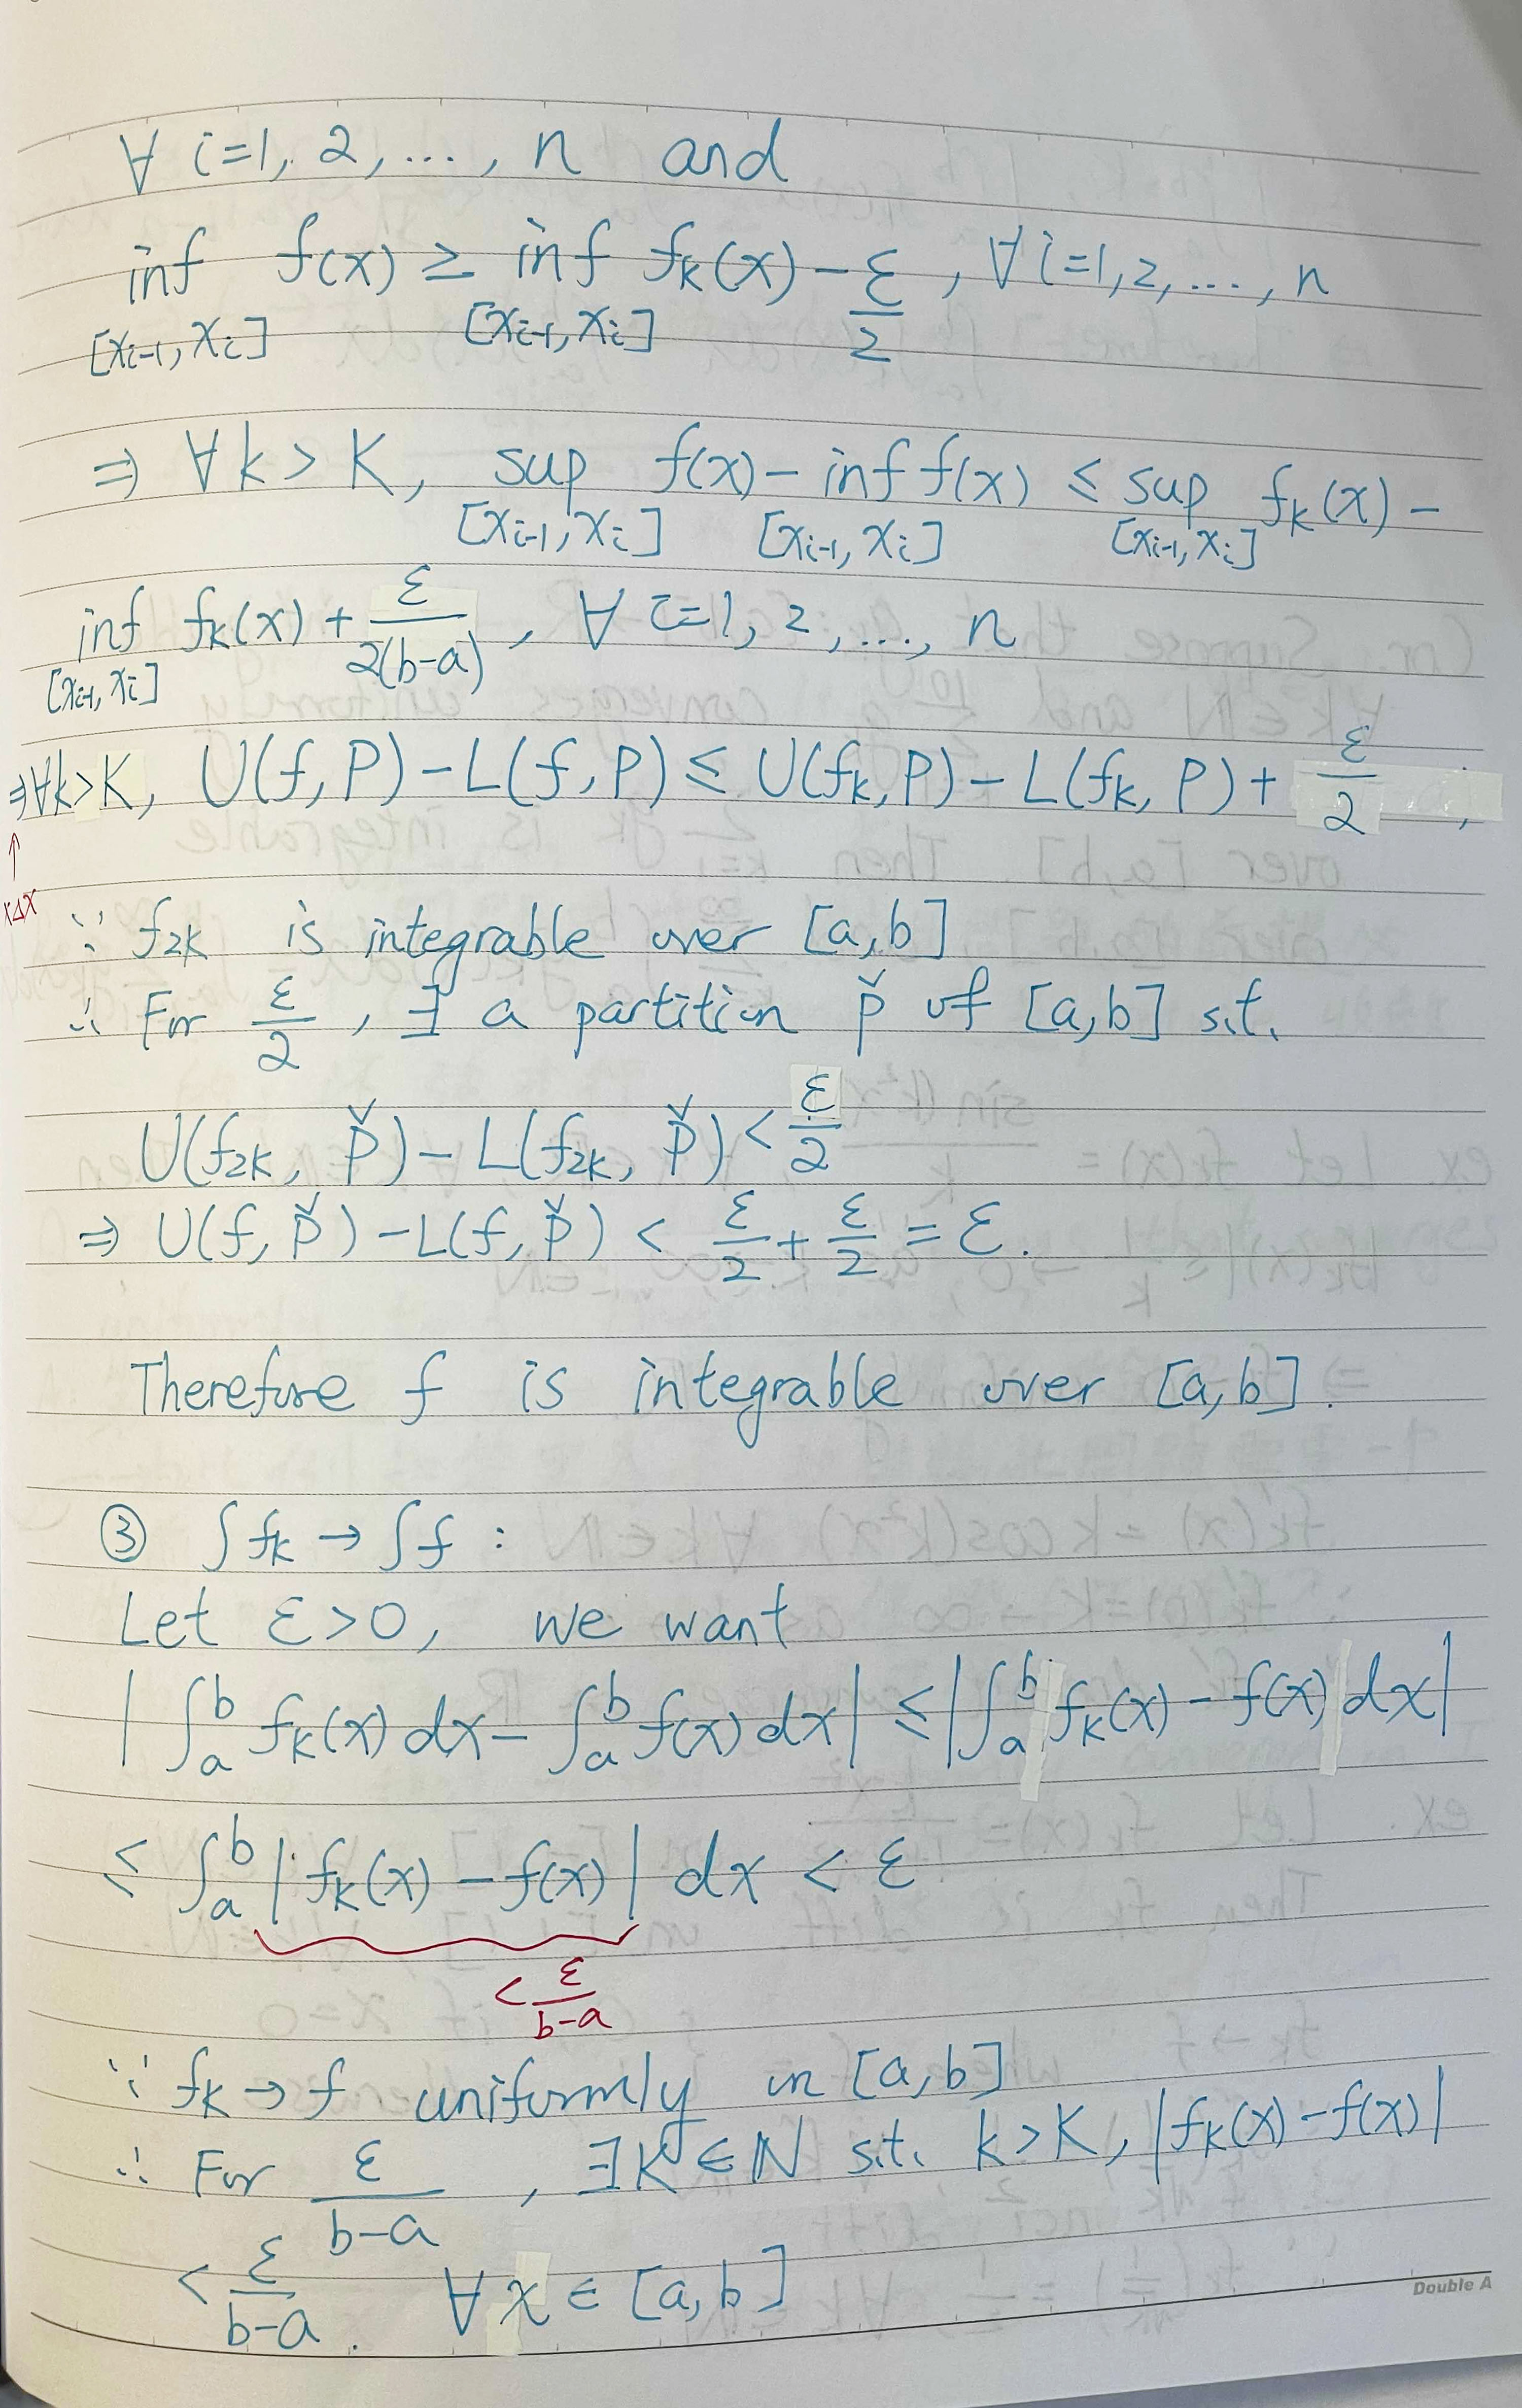 ∀ i=1, 2, ..., n and
inf f(x) ≥ inf fk(x) - ε/2, ∀ i=1, 2, ..., n
[xi-1, xi] [xi-1, xi]
⇒ ∀ k > K, sup f(x) - inf f(x) ≤ sup fk(x) -
[xi-1, xi] [xi-1, xi] [xi-1, xi]
inf fk(x) + ε/2(b-a), ∀ i=1, 2, ..., n
[xi-1, xi]
⇒ ∀k>K, U(f, P) - L(f, P) ≤ U(fk, P) - L(fk, P) + ε/2,
↑
×Δx
∵ f2K is integrable over [a, b]
∴ For ε/2, ∃ a partition P̌ of [a, b] s.t.
U(f2K, P̌) - L(f2K, P̌) < ε/2
⇒ U(f, P̌) - L(f, P̌) < ε/2 + ε/2 = ε.
Therefore f is integrable over [a, b].
③ ∫fk → ∫f :
Let ε > 0, we want
|∫ₐᵇ fk(x) dx - ∫ₐᵇ f(x) dx| ≤ |∫ₐᵇ fk(x) - f(x) dx|
< ∫ₐᵇ |fk(x) - f(x)| dx < ε
< ε/b-a
∵ fk → f uniformly in [a, b]
∴ For ε/b-a, ∃K ∈ ℕ s.t. k > K, |fk(x) - f(x)|
< ε/b-a. ∀ x ∈ [a, b]
Double A